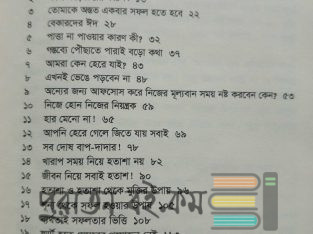 ৩ তোমাকে অন্তত একবার সফল হতে হবে ২২
৪ বেকারদের ঈদ ২৮
৫ পাত্তা না পাওয়ার কারণ কী? ৩২
৬ গন্তব্যে পৌঁছাতে পারাই বড়ো কথা ৩৭
৭ আমরা কেন হেরে যাই? ৪৩
৮ এখনই ভেঙে পড়বেন না ৪৮
৯ অন্যের জন্য আফসোস করে নিজের মূল্যবান সময় নষ্ট করবেন কেন? ৫৩
১০ নিজে হোন নিজের নিয়ন্ত্রক ৫৯
১১ হার মেনো না! ৬৫
১২ আপনি হেরে গেলে জিতে যায় সবাই ৬৯
১৩ সব দোষ বাপ-দাদার! ৭৮
১৪ খারাপ সময় নিয়ে হতাশা নয় ৮২
১৫ জীবন নিয়ে সবাই হতাশ! ৯০
১৬ হতাশা ও হতাশা থেকে মুক্তির উপায় ৯৬
১৭ থেকে সফল হওয়ার উপায় ১০৫
১৮ সফলতার ভিত্তি ১০৮